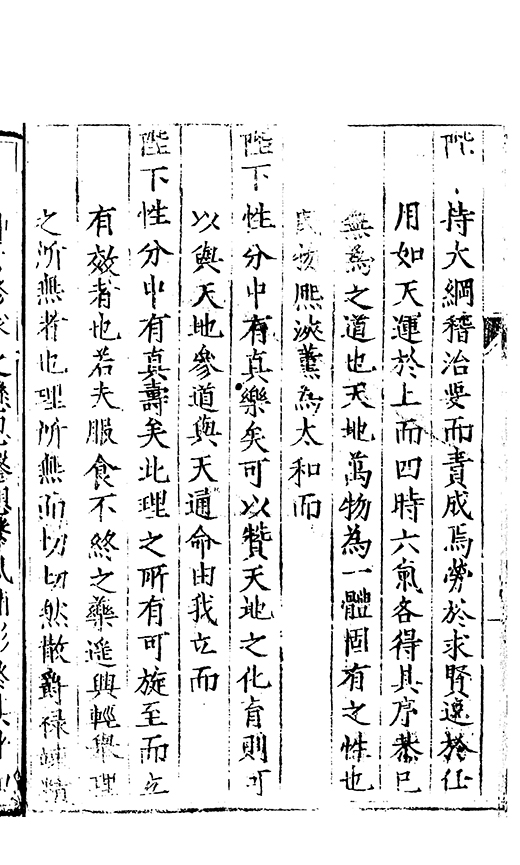 陛
持大綱稽治要而責成焉勞於求賢逸於任
用如天運於上而四時六氣各得其序恭已
無為之道也天地萬物為一體固有之性也
民物熙浹薰為太和而
陛下性分中有真樂矣可以贊天地之化育則可
以與天地參道與天通命由我立而
陛下性分中有真壽矣此理之所有可旋至而立
有效者也若夫服食不終之藥遙興輕舉理
之所無者也理所無而切切然散爵祿竦精